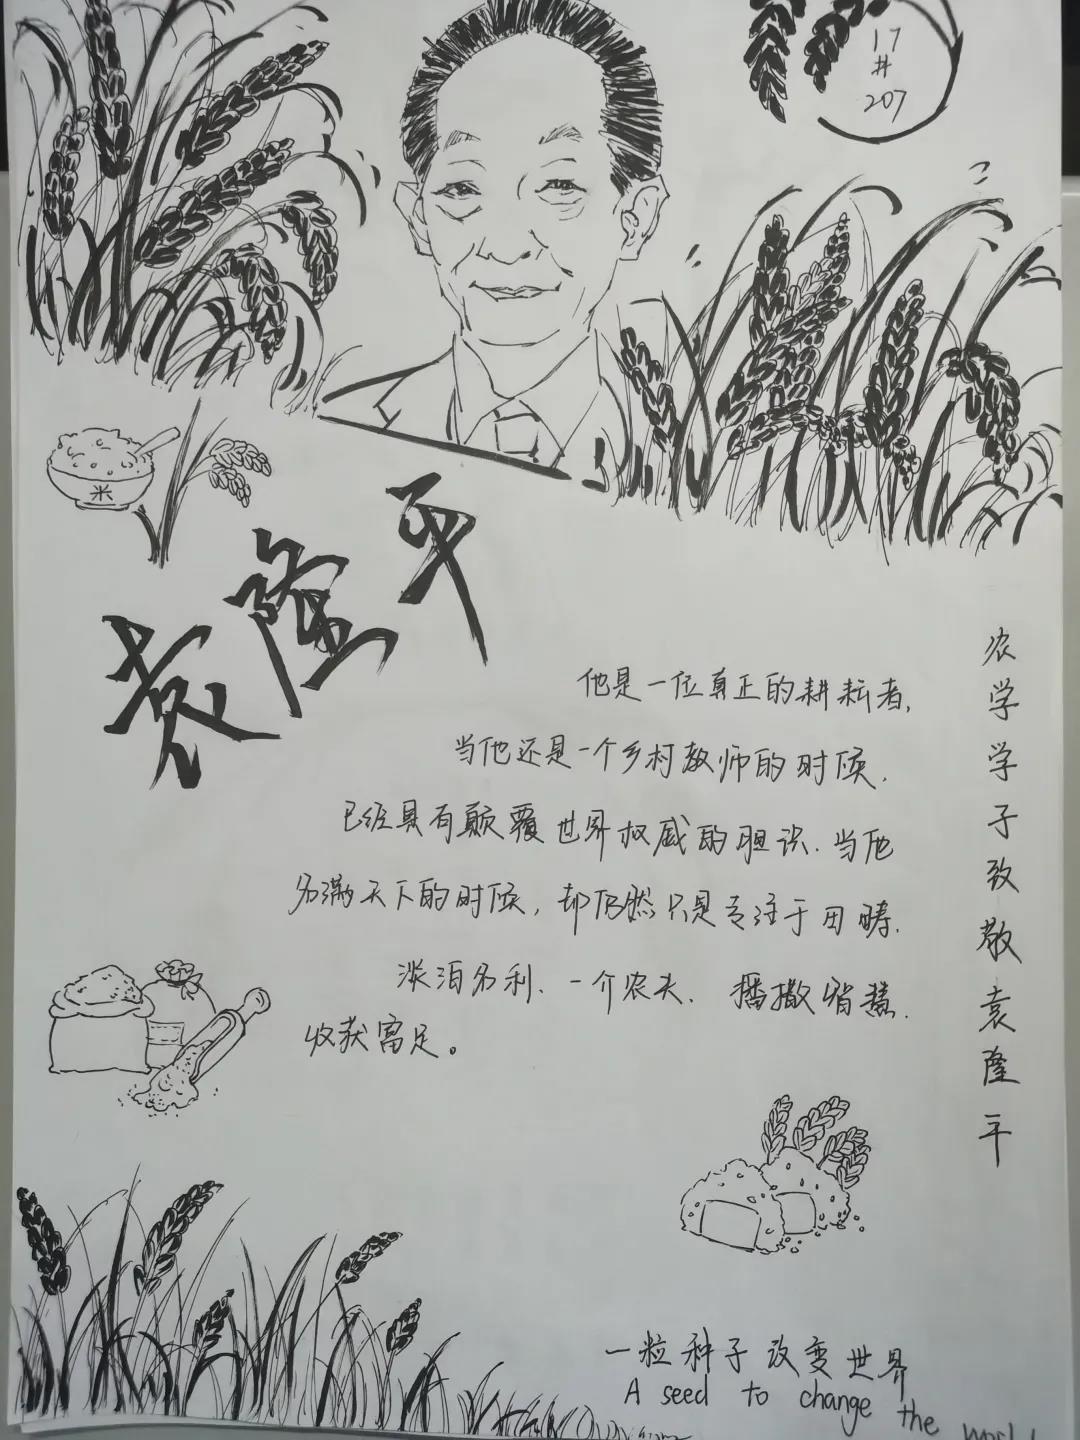 17
#
207
米
袁隆平
他是一位真正的耕耘者,
当他还是一个乡村教师的时候,
已经具有颠覆世界权威的胆识.当他
名满天下的时候,却仍然只是专注于田畴.
淡泊名利、一介农夫. 播撒智慧.
收获富足。
农学学子致敬袁隆平
一粒种子改变世界
A seed to change the world